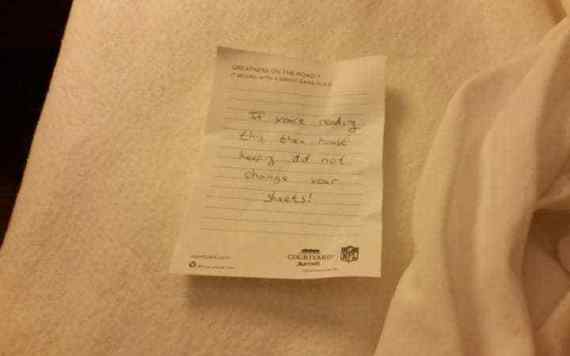 GREATNESS ON THE ROAD
IT BEGINS WITH A GREAT
If you're reading
this then house
keeping did not
change your
sheets!
COURTYARD
Marriott
NFL